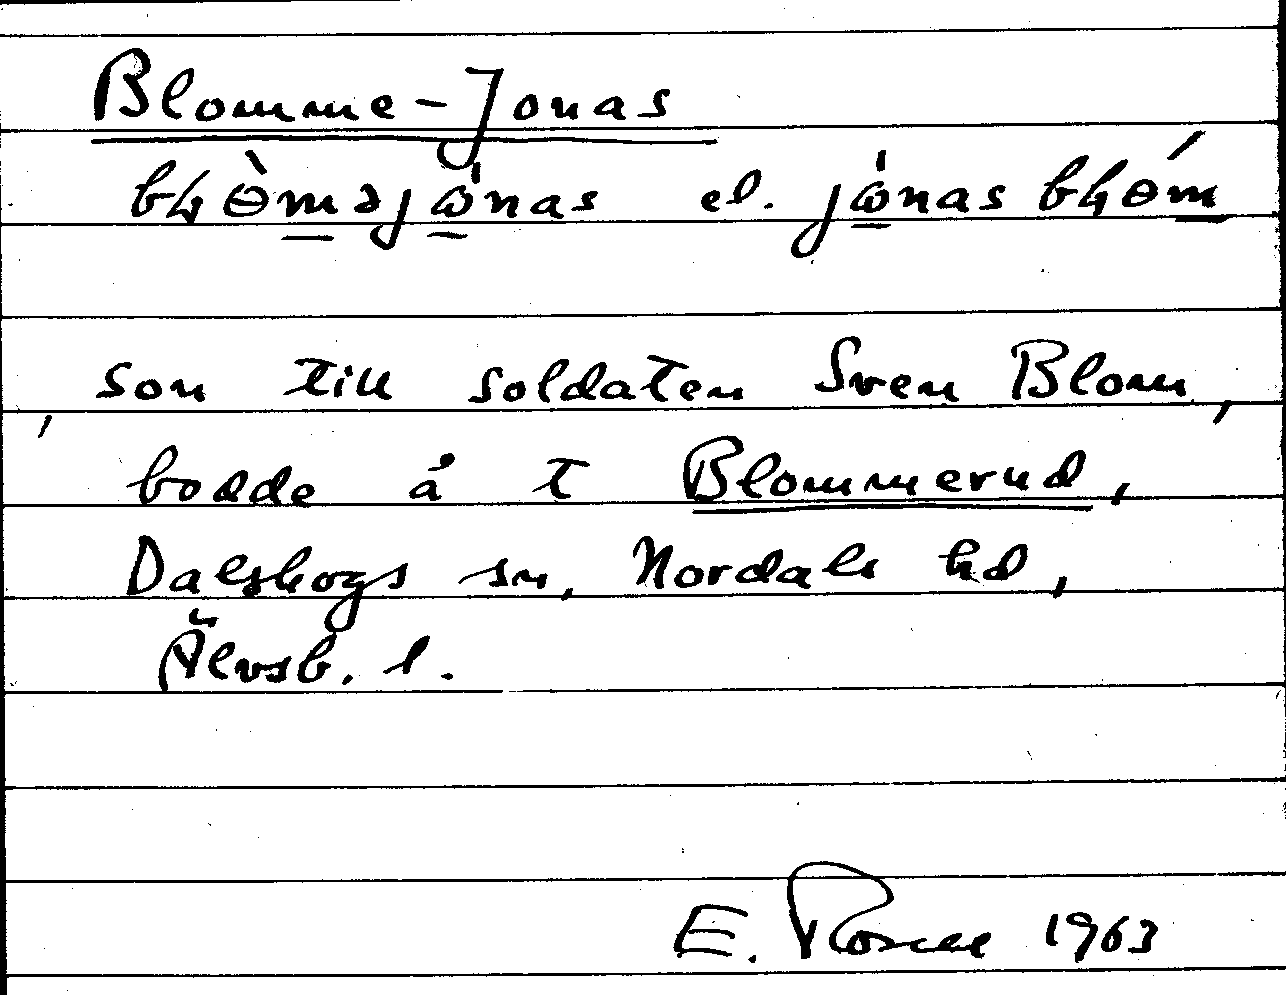 Blomme-Jonas
bɽɵ̀məjὡnas el. jὡnas bɽɵḿ
son till soldaten Sven Blom,
bodde å t Blommerud,
Dalskogs sn, Nordals hd,
Älvsb. l.
E. 1963